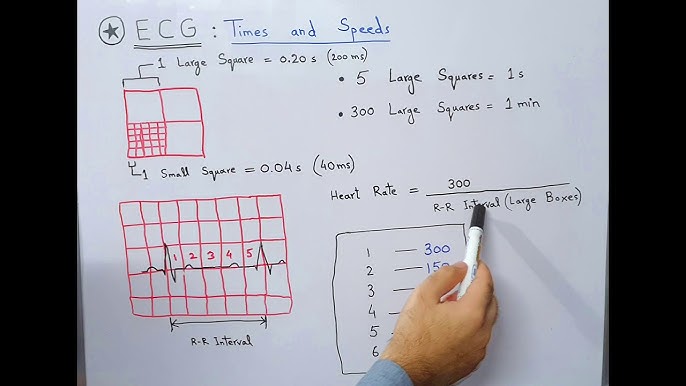 ★ ECG : Times and Speeds
1 Large Square = 0.20 s (200 ms)
• 5 Large Squares = 1 s
• 300 Large Squares = 1 min
1 Small Square = 0.04 s (40 ms)
Heart Rate = 300
R-R Interval (Large Boxes)
1 2 3 4 5
R-R Interval
1 — 300
2 — 150
3 —
4 —
5
6